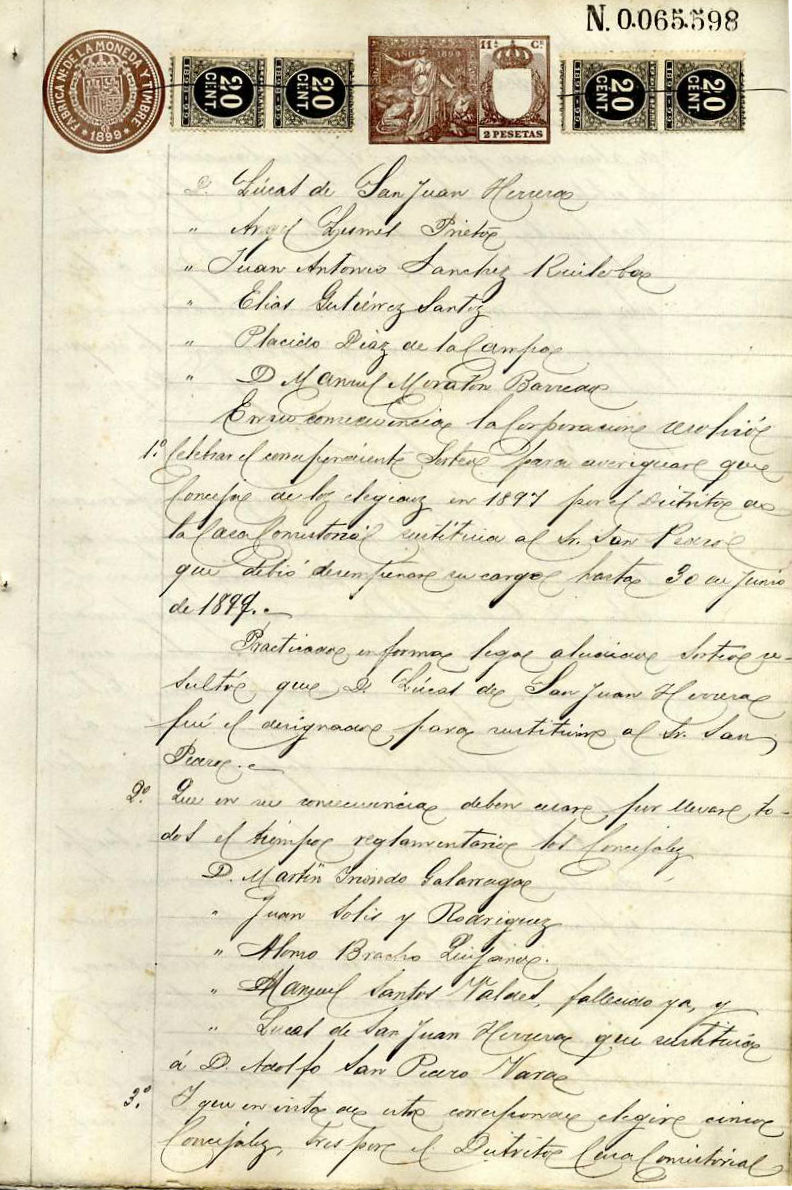 N. 0.065.598
FABRICA NL. DE LA MONEDA Y TIMBRE
* 1899 *
20 CENT
20 CENT
1899
11ª Cª
2 PESETAS
20 CENT
20 CENT
D. Lúcas de San Juan Herrera
" Angel Prieto
" Juan Antonio Sanchez Ruiloba
" Elias Gutiérrez Santiz
" Placido Diaz de la Campa
" D Manuel Moratin Barreda
En su consecuencia la Corporacion resolvió
1.º Celebrar el correspondiente Sorteo para averiguar que
Concejal de los elegidos en 1897 por el Distrito de
la Casa Comistorial sustituia al Sr. San Pedro
que debió desempeñar su cargo hasta 30 de Junio
de 1899.
Practicado en forma legal aludido Sorteo re-
sultó que D. Lúcas de San Juan Herrera
fué el designado para sustituir al Sr. San
Pedro.
2.º Que en su consecuencia deben cesar por llevar to-
do el tiempo reglamentario los Concejales
D. Martin Iriondo Galarraga
" Juan Solis y Rodriguez
" Alonso Bracho Quijano.
" Manuel Santos Valdes, fallecido ya, y
" Lucas de San Juan Herrera que sustituia
á D. Adolfo San Pedro Vara
3.º Y que en vista de esto corresponde elegir cinco
Concejales, tres por el Distrito Casa Comistorial